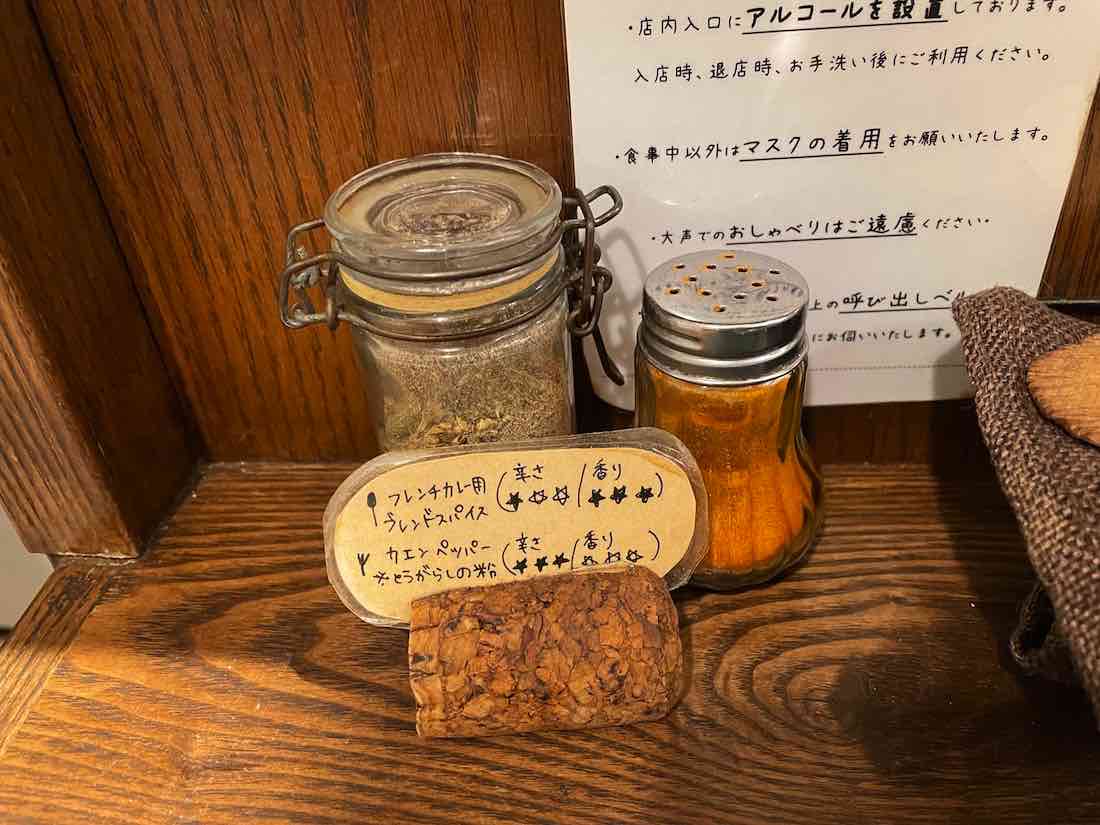 ・店内入口にアルコールを設置しております。
入店時、退店時、お手洗い後にご利用ください。
・食事中以外はマスクの着用をお願いいたします。
・大声でのおしゃべりはご遠慮ください。
上の呼び出しベル
にお伺いいたします。
フレンチカレー用
ブレンドスパイス
(辛さ ★☆☆ / 香り ★★★)
カエンペッパー
※とうがらしの粉
(辛さ ★★★ / 香り ☆☆☆)